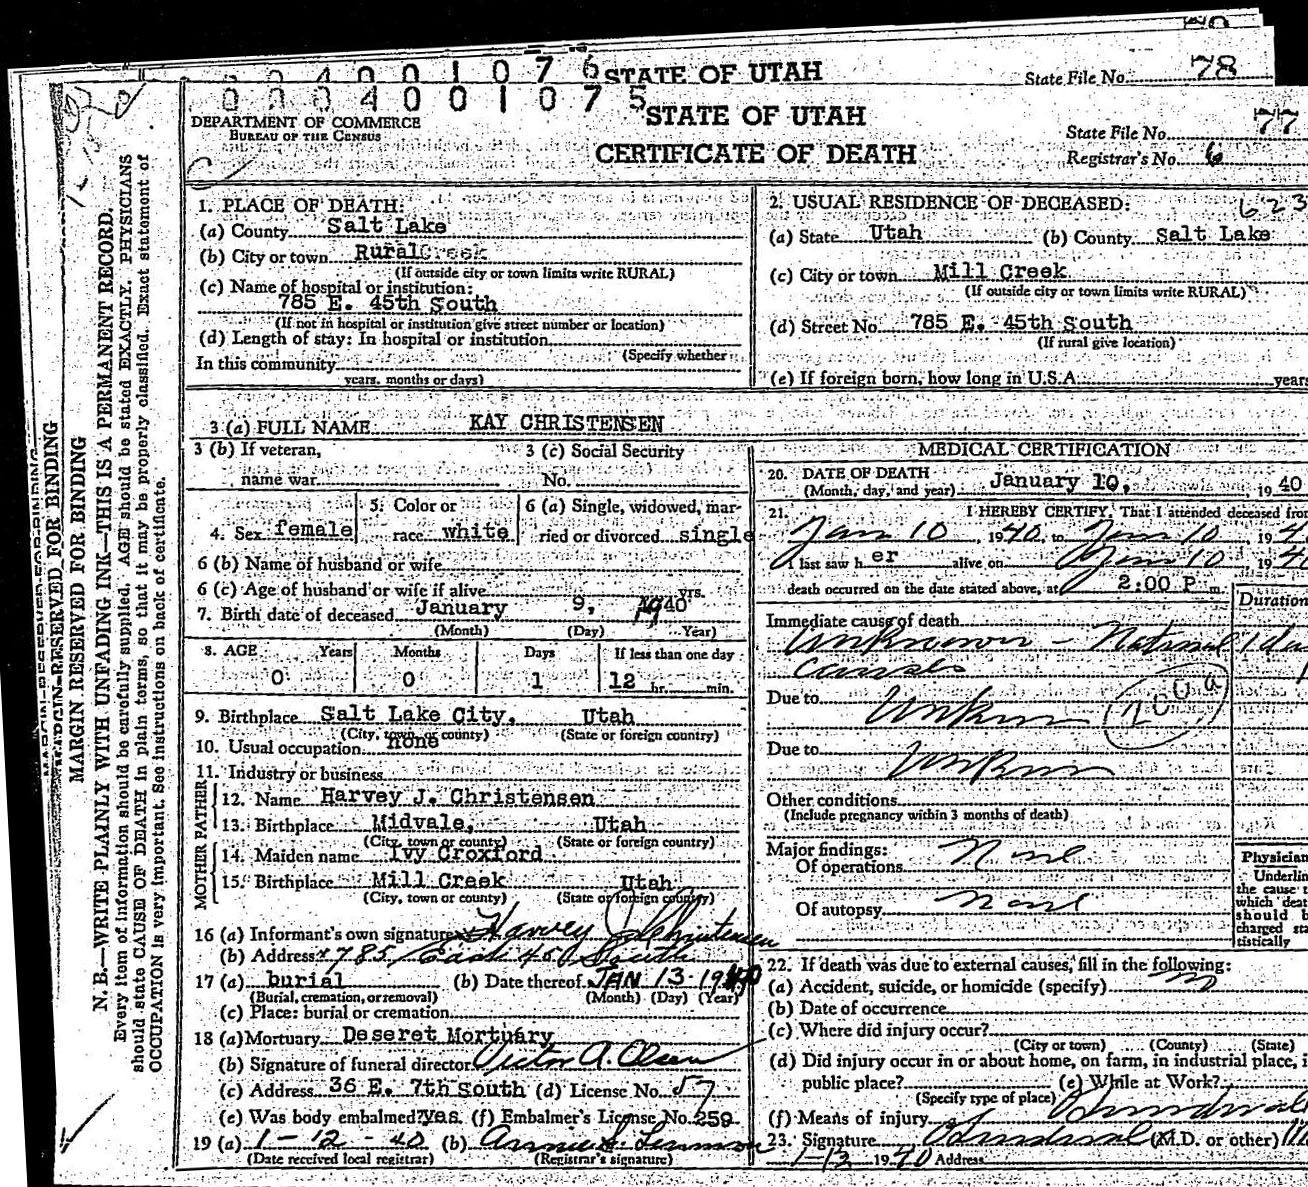 78
0 0 4 0 0 1 0 7 6 STATE OF UTAH State File No. 78
0 0 4 0 0 1 0 7 5
STATE OF UTAH
DEPARTMENT OF COMMERCE
BUREAU OF THE CENSUS
CERTIFICATE OF DEATH
State File No. 77
Registrar's No. 6
MARGIN RESERVED FOR BINDING
MARGIN RESERVED FOR BINDING
N. B.—WRITE PLAINLY WITH UNFADING INK—THIS IS A PERMANENT RECORD.
Every item of information should be carefully supplied. AGE should be stated EXACTLY. PHYSICIANS
should state CAUSE OF DEATH in plain terms, so that it may be properly classified. Exact statement of
OCCUPATION is very important. See instructions on back of certificate.
1. PLACE OF DEATH:
(a) County Salt Lake
(b) City or town Rural
(If outside city or town limits write RURAL)
(c) Name of hospital or institution:
785 E. 45th South
(If not in hospital or institution give street number or location)
(d) Length of stay: In hospital or institution
(Specify whether
In this community
years, months or days)
2. USUAL RESIDENCE OF DECEASED: 623
(a) State Utah (b) County Salt Lake
(c) City or town Mill Creek
(If outside city or town limits write RURAL)
(d) Street No. 785 E. 45th South
(If rural give location)
(e) If foreign born, how long in U.S.A. years
3 (a) FULL NAME KAY CHRISTENSEN
3 (b) If veteran,
name war
3 (c) Social Security
No.
4. Sex female
5. Color or
race white
6 (a) Single, widowed, mar-
ried or divorced single
6 (b) Name of husband or wife
6 (c) Age of husband or wife if alive yrs.
7. Birth date of deceased January 9, 1940
(Month) (Day) Year)
8. AGE Years Months Days If less than one day
0 0 1 12 hr. min.
9. Birthplace Salt Lake City, Utah
(City, town or county) (State or foreign country)
10. Usual occupation none
11. Industry or business
FATHER
12. Name Harvey J. Christensen
13. Birthplace Midvale, Utah
(City, town or county) (State or foreign country)
MOTHER
14. Maiden name Ivy Croxford
15. Birthplace Mill Creek Utah
(City, town or county) (State or foreign country)
16 (a) Informant's own signature Harvey J Christensen
(b) Address 785 East 45 South
17 (a) burial (b) Date thereof JAN 13 1940
(Burial, cremation, or removal) (Month) (Day) (Year)
(c) Place: burial or cremation
18 (a) Mortuary Deseret Mortuary
(b) Signature of funeral director Victor A. Olsen
(c) Address 36 E. 7th South (d) License No. 57
(e) Was body embalmed? yes (f) Embalmer's License No. 259
19 (a) 1-12-40 (b)
(Date received local registrar) (Registrar's signature)
MEDICAL CERTIFICATION
20. DATE OF DEATH
(Month, day, and year) January 10, 1940
21. I HEREBY CERTIFY, That I attended deceased from
Jan 10 1940, to Jan 10 194
I last saw her alive on Jan 10 194
death occurred on the date stated above, at 2:00 P m.
Duration
Immediate cause of death
Unknown - Natural 1 da
causes
Due to Unkn 200a
Due to Unkn
Other conditions
(Include pregnancy within 3 months of death)
Major findings:
Of operations None
Of autopsy None
Physician
Underlin
the cause t
which deat
should b
charged sta
tistically
22. If death was due to external causes, fill in the following:
(a) Accident, suicide, or homicide (specify) no
(b) Date of occurrence
(c) Where did injury occur?
(City or town) (County) (State)
(d) Did injury occur in or about home, on farm, in industrial place, i
public place? (e) While at Work?
(Specify type of place)
(f) Means of injury
23. Signature (M.D. or other)
1-13 1940 Address